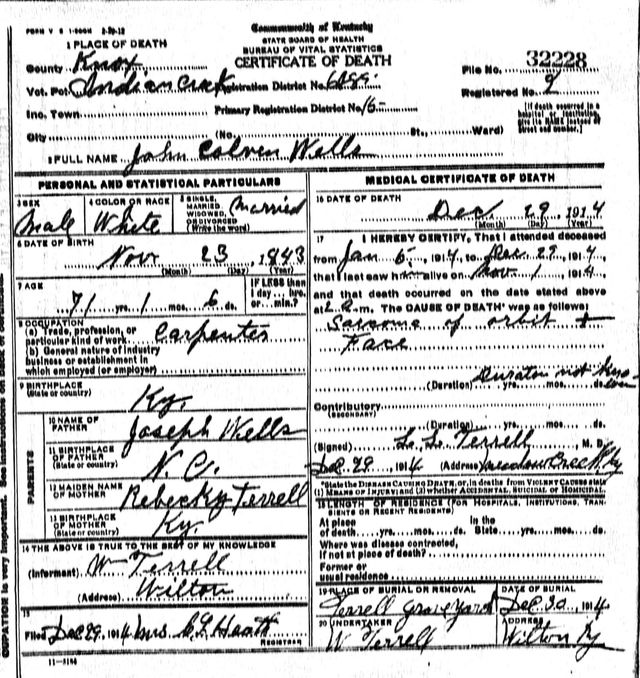 FORM V S 1-500M 3-20-12
Commonwealth of Kentucky
STATE BOARD OF HEALTH
BUREAU OF VITAL STATISTICS
CERTIFICATE OF DEATH
1 PLACE OF DEATH
County Knox
Vot. Pct. Indian Creek Registration District No.
Inc. Town Primary Registration District No.
City (No. St., Ward)
File No. 32228
Registered No. 9
[If death occurred in a hospital or institution, give its NAME instead of street and number.]
2 FULL NAME John Colven Wells
PERSONAL AND STATISTICAL PARTICULARS
3 SEX Male
4 COLOR OR RACE White
5 SINGLE, MARRIED, WIDOWED, OR DIVORCED (Write the word) Married
6 DATE OF BIRTH
Nov 23, 1843
(Month) (Day) (Year)
7 AGE
71 yrs. 1 mos. 6 ds.
IF LESS than 1 day ... hrs. or ... min.?
8 OCCUPATION
(a) Trade, profession, or particular kind of work Carpenter
(b) General nature of industry
business or establishment in
which employed (or employer)
9 BIRTHPLACE
(State or country) Ky.
PARENTS
10 NAME OF FATHER Joseph Wells
11 BIRTHPLACE OF FATHER (State or country) N.C.
12 MAIDEN NAME OF MOTHER Rebecky Terrell
13 BIRTHPLACE OF MOTHER (State or country) Ky.
14 THE ABOVE IS TRUE TO THE BEST OF MY KNOWLEDGE
(Informant) W Terrell
(Address) Wilton
15
Filed Dec 29, 1914 Mrs
REGISTRAR
11-3184
MEDICAL CERTIFICATE OF DEATH
16 DATE OF DEATH
Dec 29 1914
(Month) (Day) (Year)
17 I HEREBY CERTIFY, That I attended deceased
from Jan 6, 1914, to Dec 29, 1914,
that I last saw him alive on Nov 1, 1914,
and that death occurred on the date stated above
at m. The CAUSE OF DEATH* was as follows:
Sarcoma of orbit +
Face
Duration not known
(Duration) yrs. mos. ds.
Contributory
(SECONDARY)
(Duration) yrs. mos. ds.
(Signed) L. L. Terrell, M. D.
Dec 29, 1914 (Address)
*State the DISEASE CAUSING DEATH, or, in deaths from VIOLENT CAUSES state (1) MEANS OF INJURY and (2) whether ACCIDENTAL, SUICIDAL OR HOMICIDAL.
18 LENGTH OF RESIDENCE (FOR HOSPITALS, INSTITUTIONS, TRANSIENTS OR RECENT RESIDENTS)
At place In the
of death yrs. mos. ds. State yrs. mos. ds.
Where was disease contracted,
if not at place of death?
Former or
usual residence
19 PLACE OF BURIAL OR REMOVAL Terrell graveyard
DATE OF BURIAL Dec 30, 1914
20 UNDERTAKER W Terrell
ADDRESS Wilton Ky